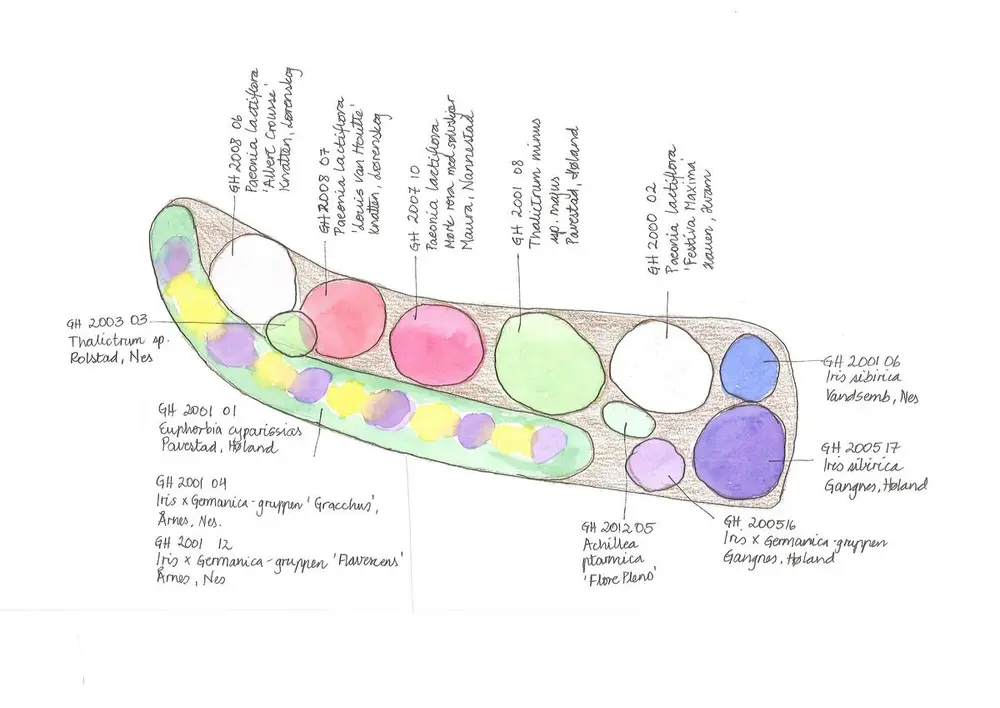 GH 2008 06
Paeonia lactiflora
'Albert Crousse'
Knatten, Lørenskog
GH 2008 07
Paeonia lactiflora
'Louis Van Houtte'
Knatten, Lørenskog
GH 2007 10
Paeonia lactiflora
Mørk rosa med sølvskjær
Maura, Nannestad
GH 2001 08
Thalictrum minus
sp. majus
Pavestad, Høland
GH 2000 02
Paeonia lactiflora
'Festiva Maxima'
Hauen, Hvam
GH 2003 03
Thalictrum sp.
Rolstad, Nes
GH 2001 06
Iris sibirica
Vandsemb, Nes
GH 2001 01
Euphorbia cyparissias
Pavestad, Høland
GH 2005 17
Iris sibirica
Gangnes, Høland
GH 2001 04
Iris x Germanica-gruppen 'Gracchus',
Årnes, Nes.
GH 2001 12
Iris x Germanica-gruppen 'Flavescens'
Årnes, Nes
GH 2012 05
Achillea
ptarmica
'Flore Pleno'
GH 2005 16
Iris x Germanica-gruppen
Gangnes, Høland